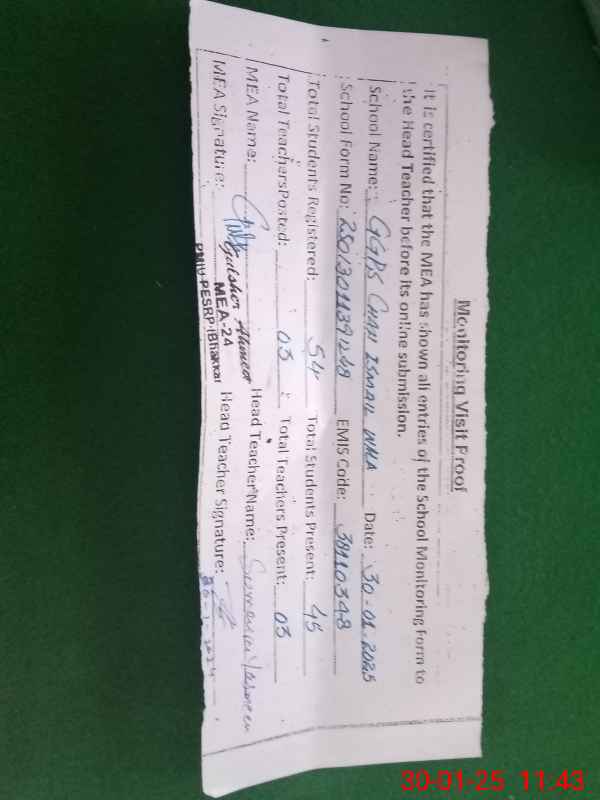 Monitoring Visit Proof
It is certified that the MEA has shown all entries of the School Monitoring Form to
the Head Teacher before its online submission.
School Name: GGPS CHAH ISMAIL WALA Date: 30-01-2025
School Form No: EMIS Code: 38110348
Total Students Registered: 54 Total Students Present: 45
Total Teachers Posted: 03 Total Teachers Present: 03
MEA Name: Gulsher Ahmed Head Teacher Name: Yasmeen
MEA Signature: MEA-24 Head Teacher Signature:
PMIU-PESRP (Bhakkar
30-01-25 11:43